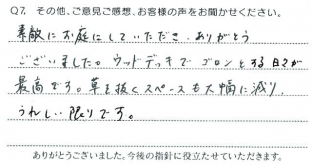 Q7. その他、ご意見ご感想、お客様の声をお聞かせください。
素敵にお庭にしていただき、ありがとう
ございました。ウッドデッキでゴロンとする日々が
最高です。草を抜くスペースも大幅に減り、
うれしい限りです。
ありがとうございました。今後の指針に役立たせていただきます。